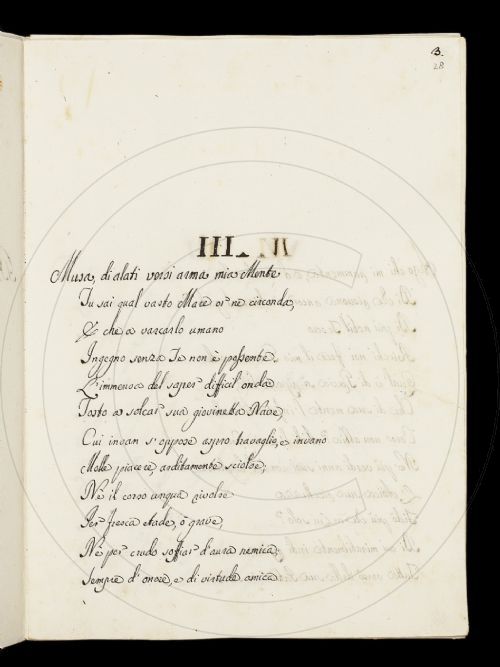 3.
28
III.
Musa, di alati versi arma mia Mente
Tu sai qual vasto Mare or ne circonda,
E che a varcarlo umano
Ingegno senza Te non è possente.
L'immensa del saper difficil onda
Tosto a solcar sua giovinetta Nave,
Cui invan s'oppose aspro travaglio, e invano
Molle piacere, arditamente sciolse;
Nè il corso unqua rivolse
Per fresca etade, o grave,
Nè per crudo soffiar d'aura nemica;
Sempre d'onore, e di virtude amica